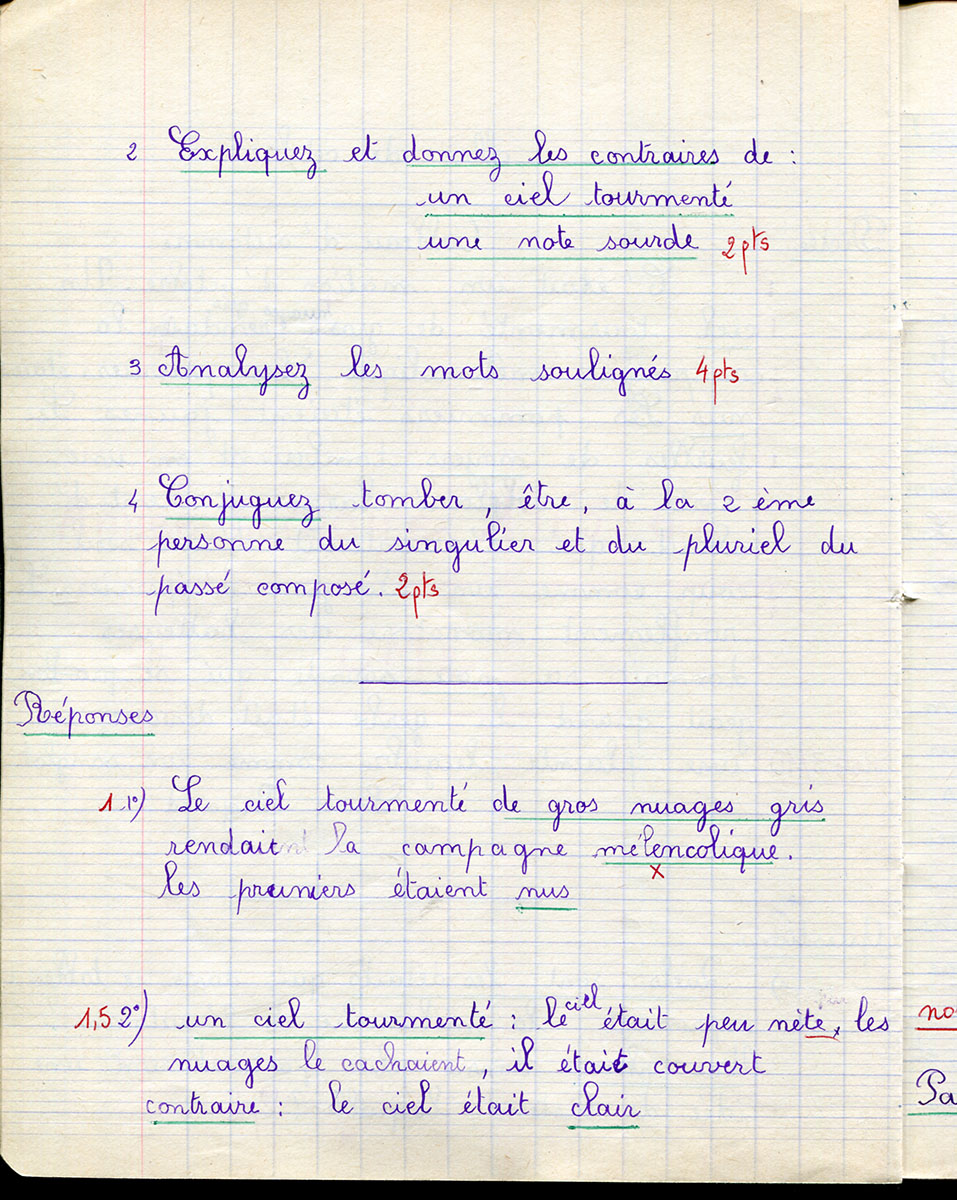 2 Expliquez et donnez les contraires de :
un ciel tourmenté
une note sourde 2pts
3 Analysez les mots soulignés 4pts
4 Conjuguez tomber, être, à la 2ème
personne du singulier et du pluriel du
passé composé. 2pts
Réponses
1 1º) Le ciel tourmenté de gros nuages gris
rendait la campagne mélencolique.
x
les pruniers étaient nus
1,5 2º) un ciel tourmenté : le ciel était peu nète, les
nuages le cachaient, il était couvert
contraire : le ciel était clair
no
Pa